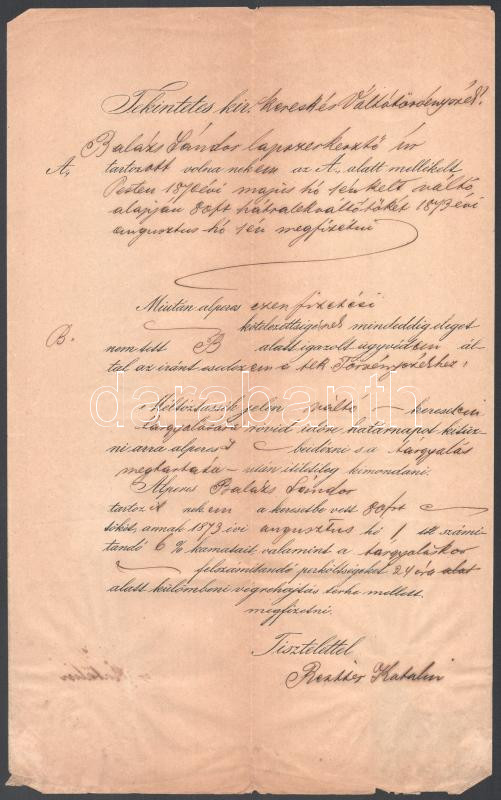 Tekintetes kir. keresk és Váltótörvényszék!
Balázs Sándor lapszerkesztő úr
A, tartozott volna nekem az A, alatt mellékelt
Pesten 187 évi május hó 1én kelt váltó
alapján 80 frt hátralék váltótőkét 1873 évi
augusztus hó 1én megfizetni
Miután alperes ezen fizetési
B. kötelezettségének mindeddig eleget
nem tett B alatt igazolt ügyvédem ál-
tal az iránt esedezem a tek Törvényszékhez:
Méltóztassék jelen váltó keresetem
tárgyalására rövid időre határnapot kitűz-
ni arra alperest beidézni s a tárgyalás
megtartása után ítéletileg kimondani.
Alperes Balázs Sándor
tartozik nekem a keresetbe vett 80 frt
tőkét, annak 1873 évi augusztus hó 1 től számí-
tandó 6 % kamatait valamint a tárgyaláskor
felszámítandó perköltségeket 24 óra alat
alatt külömbeni végrehajtás terhe mellett
megfizetni.
Tisztelettel
Katalin
darabanth